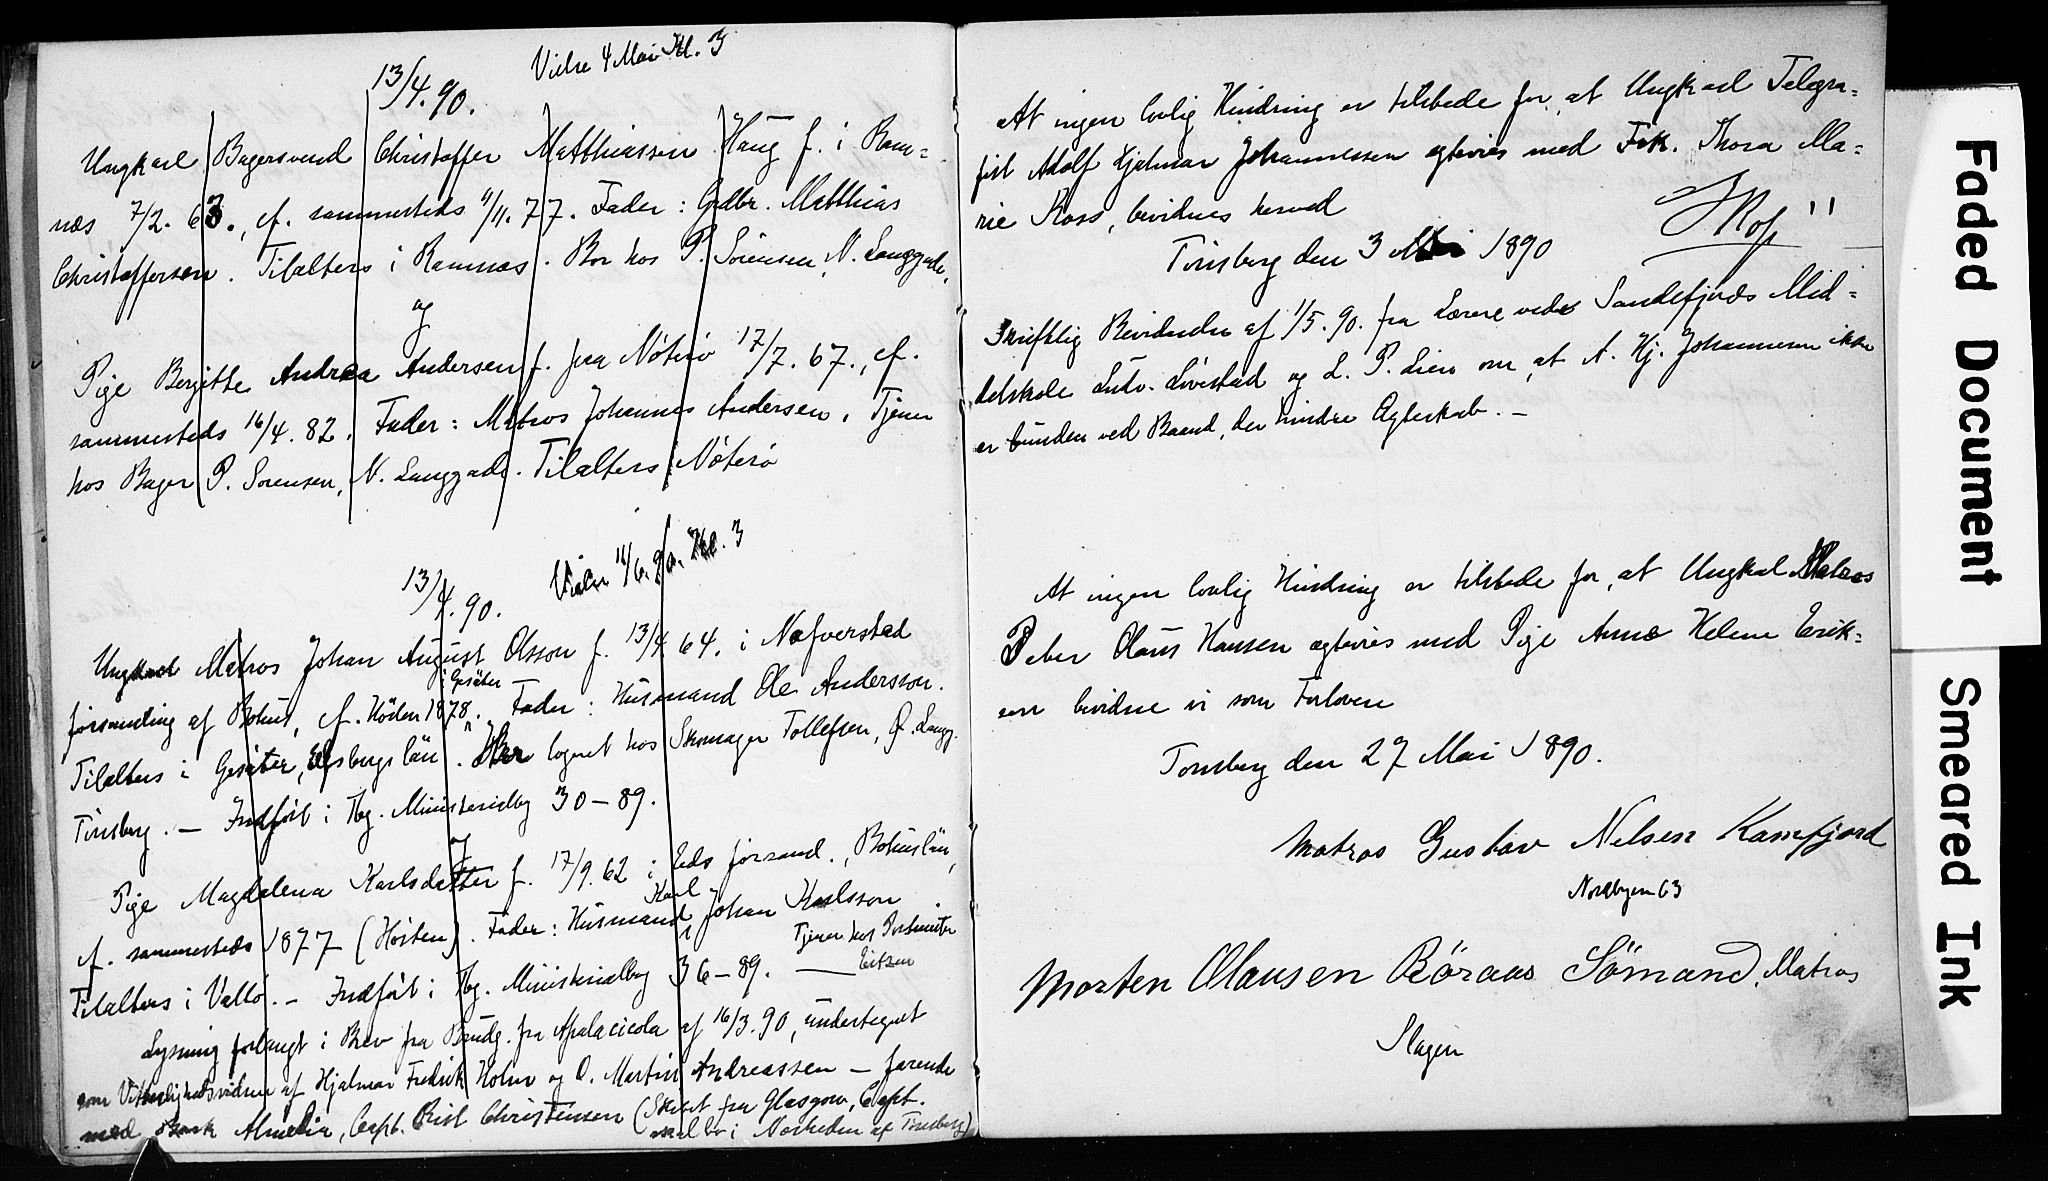 Vielse 4 Mai Kl. 3
13/4. 90.
Ungkarl Bagersvend Christoffer Matthiassen Haug f. i Ram=
næs 7/2. 63., cf. sammesteds 4/11. 77. Fader: Grdbr. Matthias
Christoffersen. Tilalters i Ramnæs. Bor hos P. Sörensen, N. Langgade.
og
Pige Bergitte Andrea Andersen f. paa Nöterö 17/7. 67., cf.
sammesteds 16/4. 82. Fader: Matros Johannes Andersen. Tjener
hos Bager P. Sörensen, N. Langgade. Tilalters i Nöterö
Vielse 14/6. 90. Kl. 3
13/4. 90.
Ungkarl Matros Johan August Olsson f. 13/4 64. i Nafverstad
i Gesäter
församling af Bohus, cf. Hösten 1878. Fader: Husmand Ole Andersson.
Tilalters i Gesäter, Elfsborgs län. Har logeret hos Skomager Tollefsen, Ø. Langg.
Tönsberg. — Indfört i Tbg. Ministerialbog 30 – 89.
og
Pige Magdalena Karlsdatter f. 17/9. 62 i Leds församl., Bohuslän,
Karl
cf. sammesteds 1877 (Hösten). Fader: Husmand Johan Karlsson
Tjener hos Postmester
Tilalters i Vallö. – Indfört i Tbg. Ministerialbog 36 – 89. — Eitzen
Lysning forlangt i Brev fra Brudg. fra Apalacicola af 16/3. 90, undertegnet
som Vitterlighedsvidner af Hjalmar Fredrik Holm og O. Martin Andreassen – farende
med Bark Almedia, Capt. Krist Christensen (Skibet fra Glasgow, Capt.
i Nærheden af Tönsberg)
At ingen lovlig Hindring er tilstede for, at Ungkarl Telegra=
fist Adolf Hjalmar Johannessen ægtevies med Frk. Thora Ma=
rie Koss, bevidnes herved
Tönsberg den 3 Mai 1890
Skriftlig Bevidnelse af 1/5. 90. fra Lærere ved Sandefjords Mid=
delskole Ludv. Lövestad og L. P. Lien om, at A. Hj. Johannessen ikke
er bunden ved Baand, der hindre Ægteskab. –
At ingen lovlig Hindring er tilstede for, at Ungkarl Matros
Peter Olaus Hansen ægtevies med Pige Anne Helene Erik=
sen bevidne vi som Forlovere
Tönsberg den 27 Mai 1890.
Matros Gustav Nilsen Kamfjord
Nordbyen 63
Morten Olausen Röraas Sömand, Matros
Slagen
Faded Document
Smeared Ink